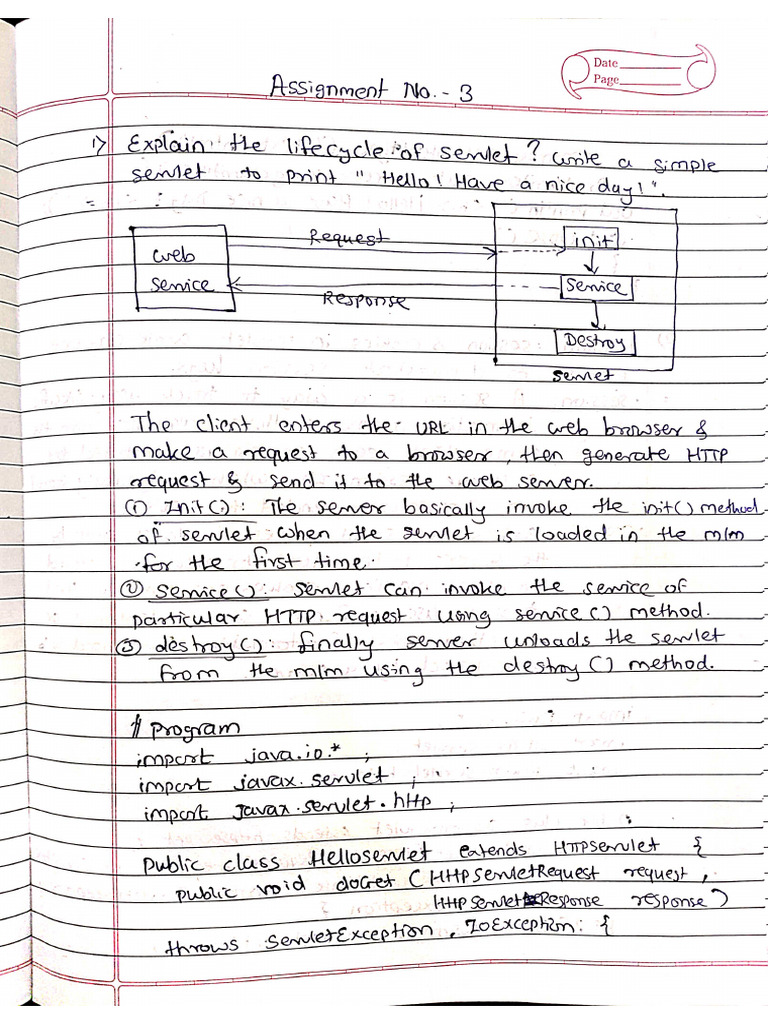 Date
Page
Assignment No. - 3
1) Explain the lifecycle of servlet? Write a simple
servlet to print "Hello! Have a nice day!".
=
Request
init
Web
Service
Service
Response
Destroy
Servlet
The client enters the URL in the web browser &
make a request to a browser, then generate HTTP
request & send it to the web server.
① Init(): The server basically invoke the init() method
of servlet when the servlet is loaded in the m/m
for the first time.
② Service(): servlet can invoke the service of
particular HTTP request using service() method.
③ destroy(): finally server unloads the servlet
from the m/m using the destroy() method.
// Program
import java.io.* ;
import javax.servlet ;
import javax.servlet.http ;
public class Helloservlet extends HTTPServlet {
public void doGet (HttpServletRequest request,
HttpServletResponse response)
throws ServletException, IOException: {